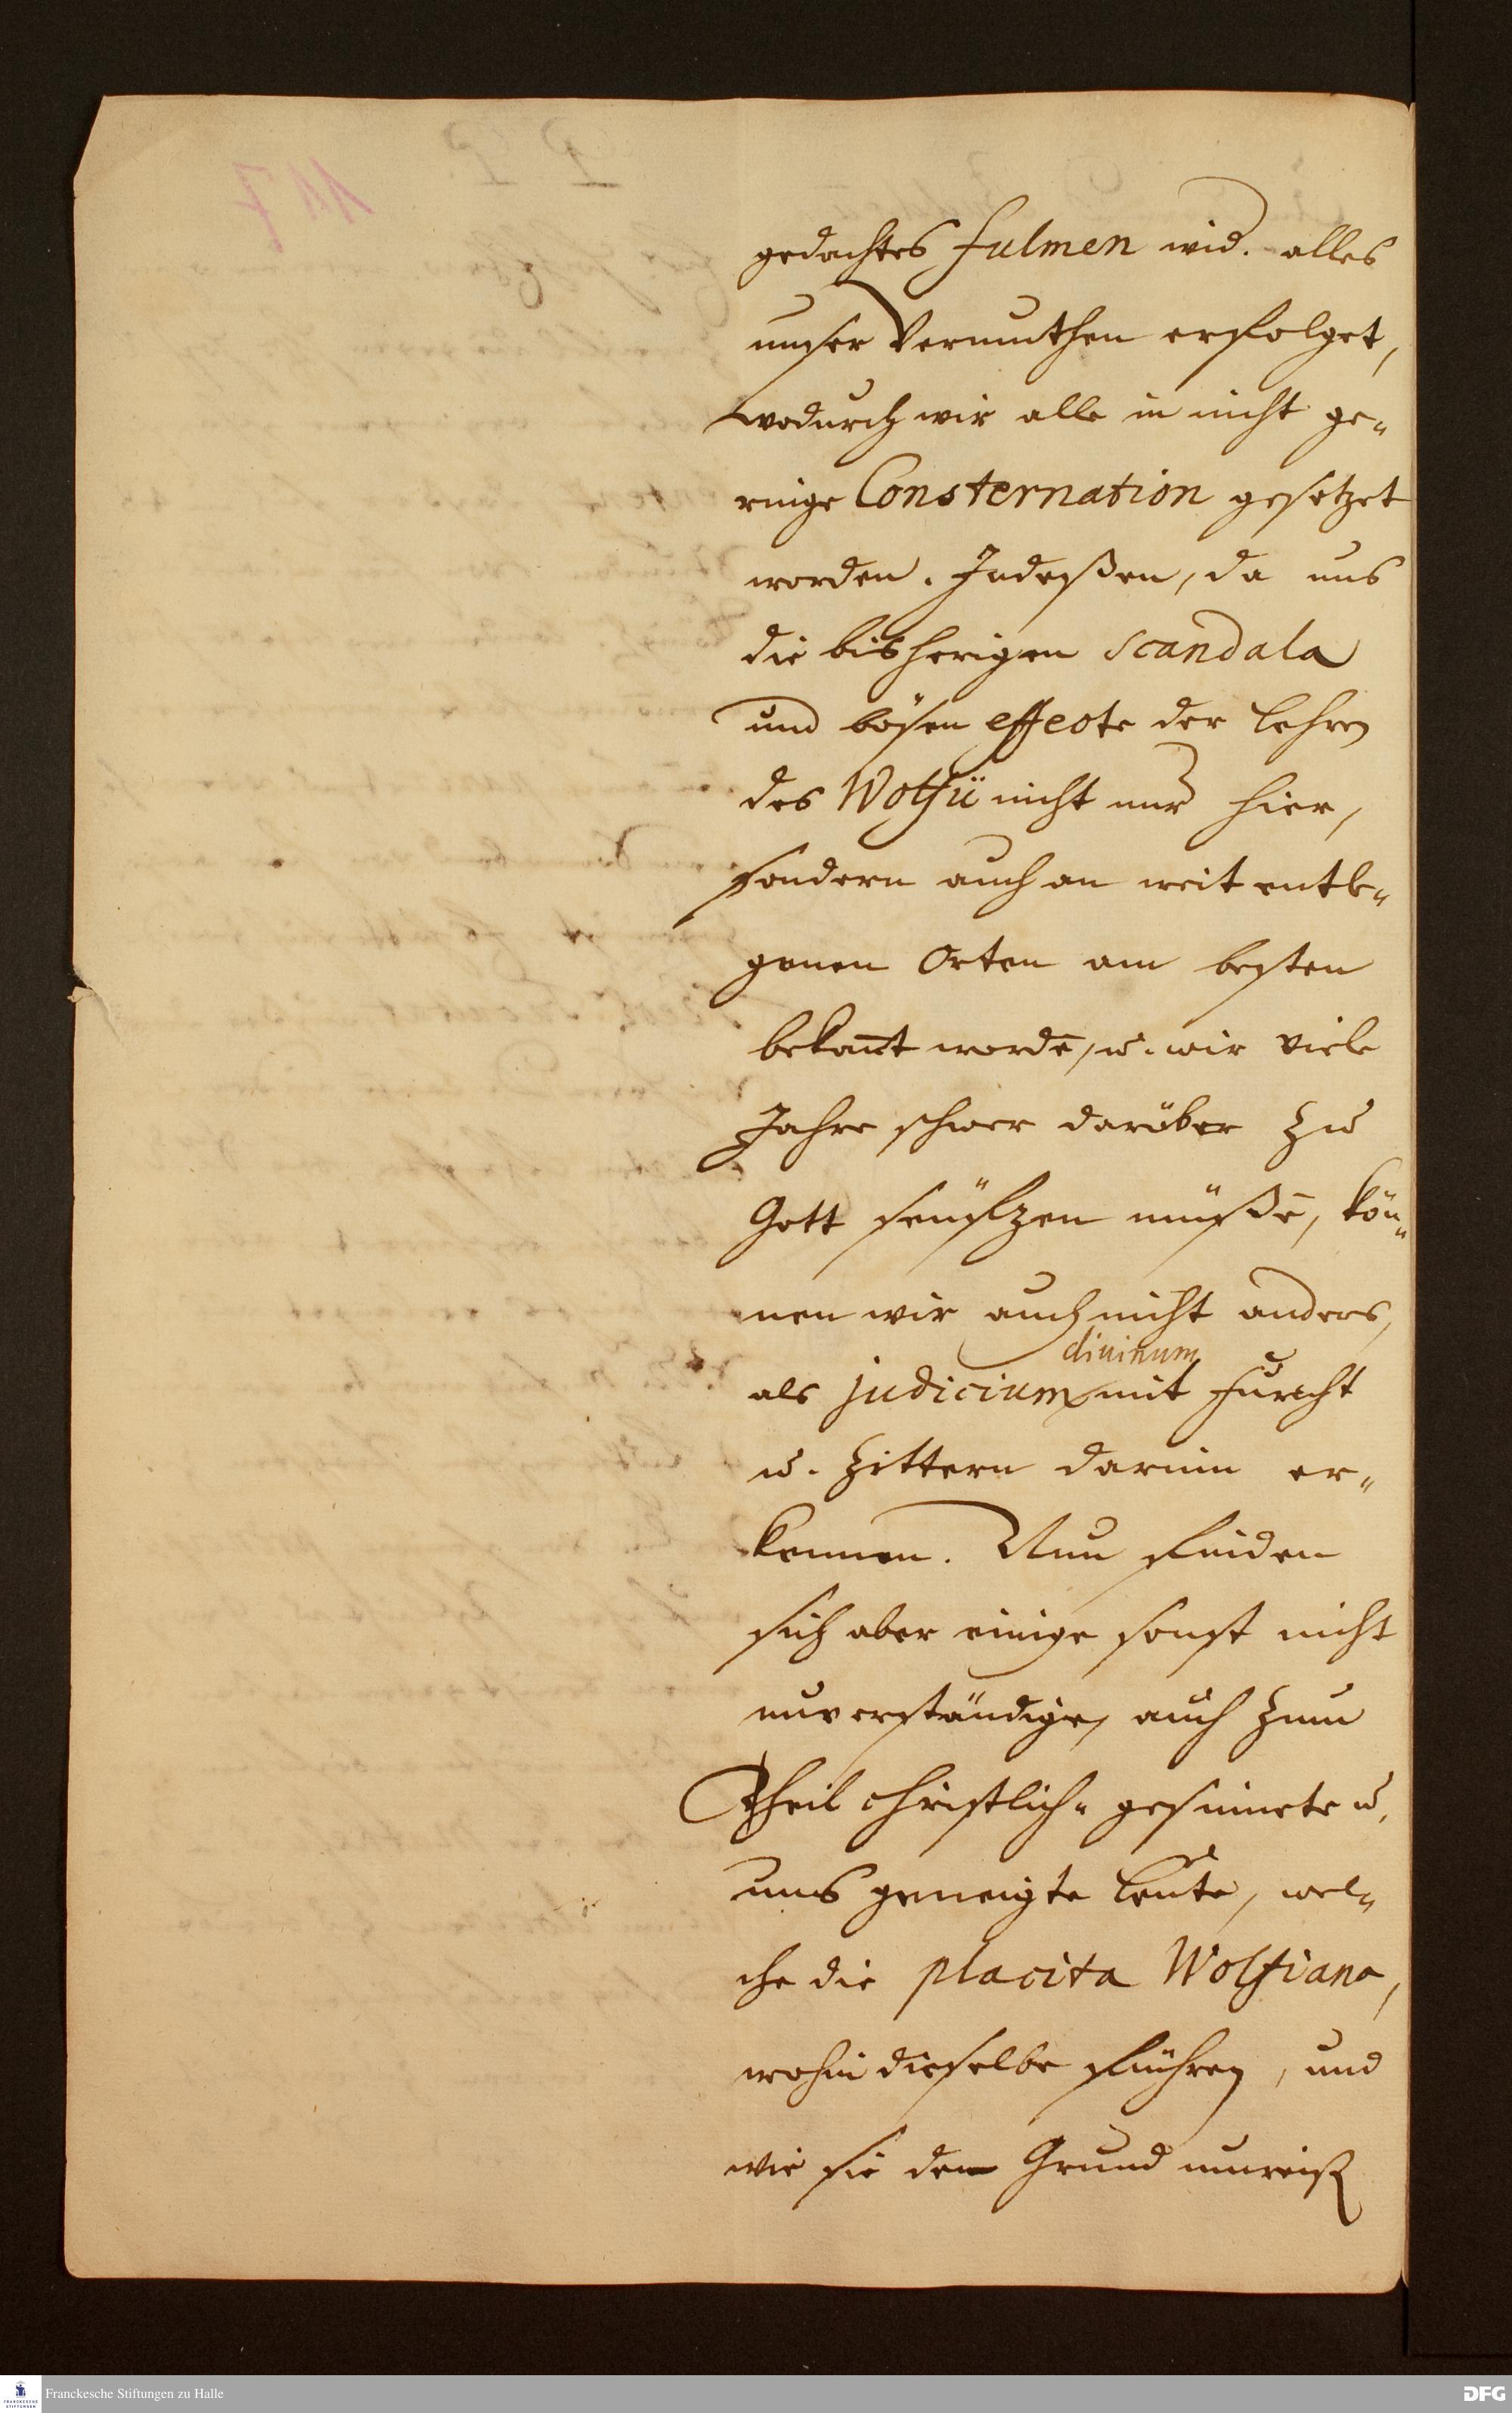 gedachtes fulmen wid. alles
unser Vermuthen erfolget,
wodurch wir alle in nicht ge-
ringe Consternation gesetzet
worden. Indeßen, da uns
die bisherigen scandala
und bösen effecte der Lehren
des Wolfii nicht nur hier,
sondern auch an weit entle-
genen Orten am besten
bekañt wordē, u. wir viele
Jahre schwer darüber zu
Gott seüfzen müßē, kön-
nen wir auch nicht anders,
divinum
als judicium mit Furcht
u. Zittern darinn er-
kennen. Nun finden
sich aber einige sonst nicht
unverständige, auch zum
Theil christlich-gesinnete u.
uns geneigte Leute, wel-
che die placita Wolfiana,
wohin dieselbe führen, und
wie sie den Grund umreiß
Franckesche Stiftungen zu Halle
DFG